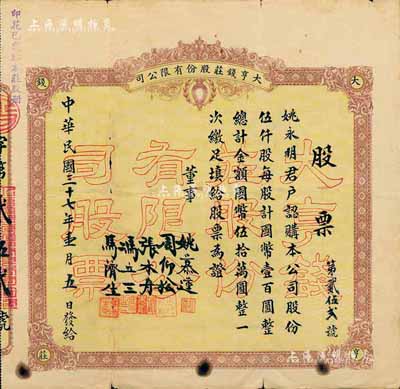 大亨錢莊股份有限公司
股票
第貳伍貳號
姚永明君戶認購本公司股份
伍仟股每股計國幣壹百圓整
總計金額國幣伍拾萬圓整一
次繳足填給股票為證
董事
姚慕蓮
周仰松
張木舟
馮立三
馬濟生
中華民國三十七年壹月五日發給
大亨錢
莊股份
有限公
司股票
大
錢
亨
莊
字第貳伍貳號